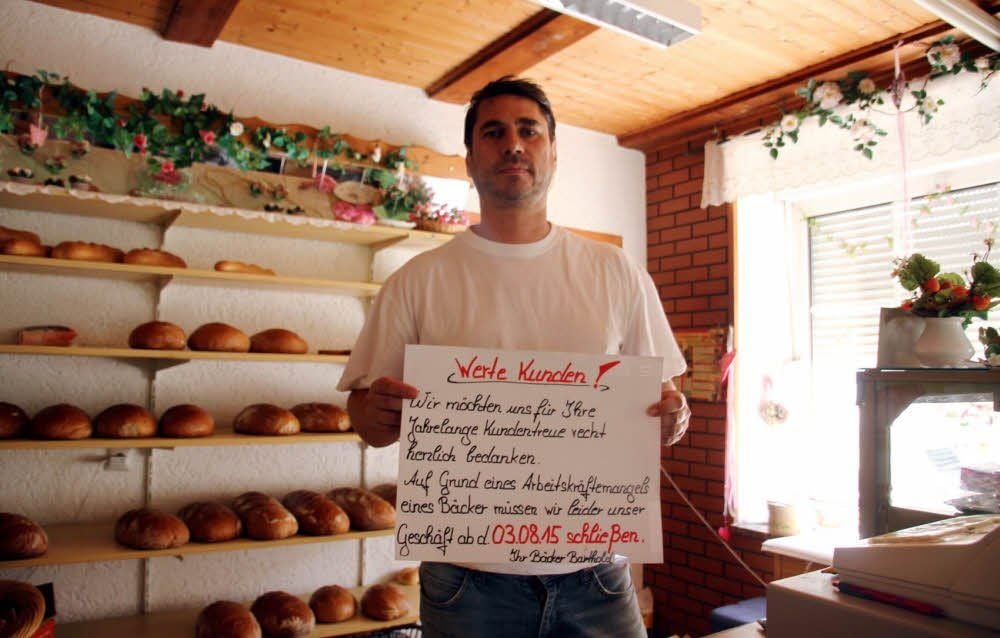 Werte Kunden!
Wir möchten uns für Ihre
Jahrelange Kundentreue recht
herzlich bedanken.
Auf Grund eines Arbeitskräftemangels
eines Bäcker müssen wir leider unser
Geschäft ab d. 03.08.15 schließen.
Ihr Bäcker Barthold